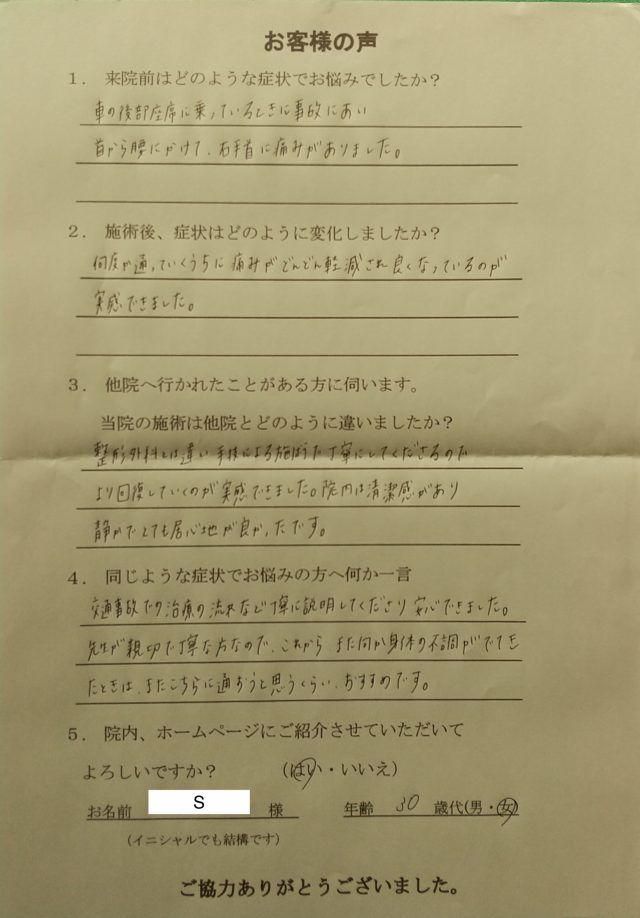 お客様の声
1. 来院前はどのような症状でお悩みでしたか？
車の後部座席に乗っているときに事故にあい
首から腰にかけて、右手首に痛みがありました。
2. 施術後、症状はどのように変化しましたか？
何度か通っていくうちに痛みがどんどん軽減され良くなっているのが
実感できました。
3. 他院へ行かれたことがある方に伺います。
当院の施術は他院とどのように違いましたか？
整形外科とは違い手技による施術で丁寧にしてくださるので
より回復していくのが実感できました。院内は清潔感があり
静かでとても居心地が良かったです。
4. 同じような症状でお悩みの方へ何か一言
交通事故での治療の流れなど丁寧に説明してくださり安心できました。
先生が親切で丁寧な方なので、これから、また何か身体の不調がでてき
たときは、またこちらに通おうと思うくらい、おすすめです。
5. 院内、ホームページにご紹介させていただいて
よろしいですか？ （はい・いいえ）
お名前 S 様 年齢 30 歳代(男・女)
（イニシャルでも結構です）
ご協力ありがとうございました。